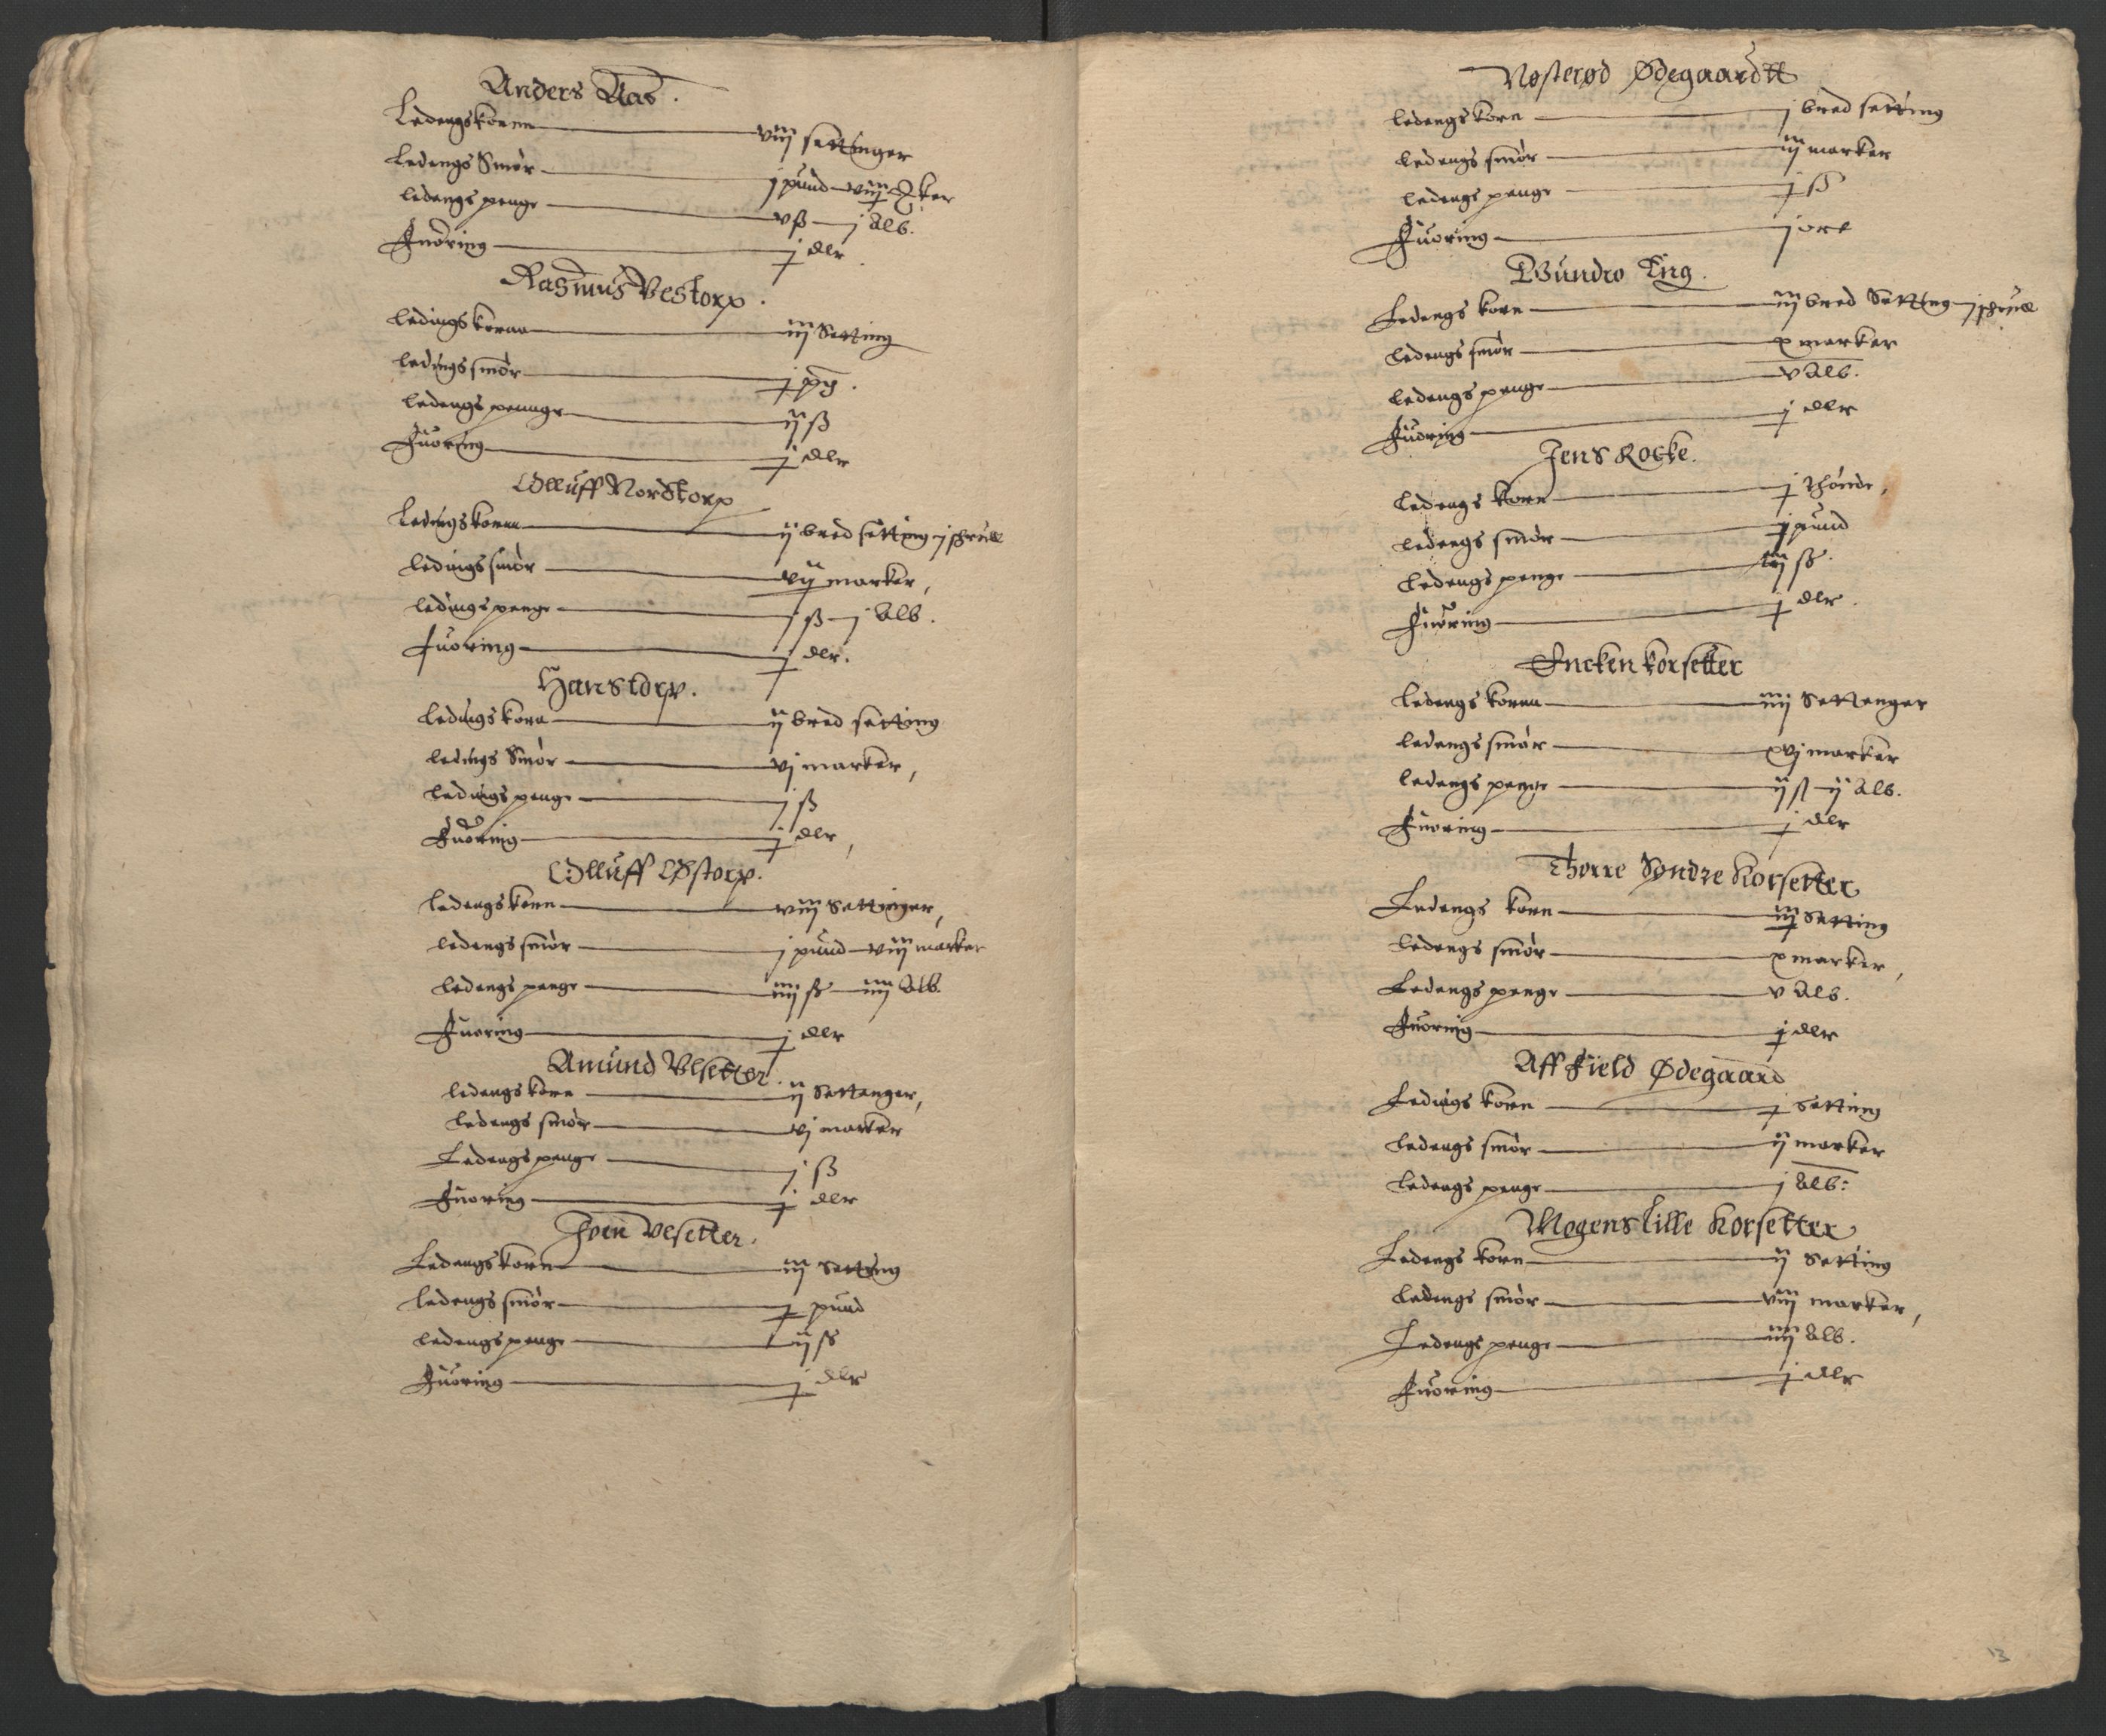 Anders Aas.
Ledengskornn viij settinger
Ledengs Smør j pund viij mker
ledengs penge v ß j Alb.
Fuoring j dlr
Rasmus Vestorp.
Ledings kornn iiij Setting
ledings smør j pd.
ledengs pennge ij ß
Fuoring j dlr
Olluff Nordtorp
Ledings kornn ij bred setting j shrull
ledings smør vij marker,
ledings penge j ß j Alb.
Fuoring j dlr.
Hanstorp.
ledings korn ij bred setting
ledings Smør vj marker,
ledings penge j ß
Fuoring j dlr,
Olluff Østorp.
ledengs korn viij Settinger,
ledengs smør j pund viij marker
ledengs penge iiij ß iiij Alb.
Fuoring j dlr
Amund Vlsetter.
ledengs korn ij Settenger,
ledengs smør vj marker
Ledengs penge j ß
Fuoring j dlr
Joen Vlsetter.
Ledengs korn iiij Setting
ledengs smør j pund
ledengs penge ij ß
Fuoring j dlr
Nøsterød Ødegaardtt
ledengs korn j bred setting
ledengs smør iij marker
ledengs penge j ß
Fuoring j ort
Gundro Eng.
Ledengs korn iij bred Setting j shrull
ledengs smør x marker
ledengs penge v Alb.
Fuoring j dlr
Jens Rocke.
ledengs korn j thønde,
ledengs smør j pund
ledengs penge iij ß.
Fuoring j dlr.
Encken korsetter
ledengs kornn iiij Settenger
ledengs smør xvj marker
ledengs penge ij ß ij Alb.
Fuoring j dlr
Thorre Syndre Korsetter
Ledengs korn iij Setting
ledengs smør x marker,
Ledengs penge v Alb.
Fuoring j dlr
Aff Field Ødegaard
Ledings korn j Setting
ledengs smør ij marker
ledengs penge j Alb:
Mogens lille Korsetter
Ledengs korn ij Setting
ledengs smør viij marker,
Ledengs penge iiij Alb.
Fuoring j dlr
13